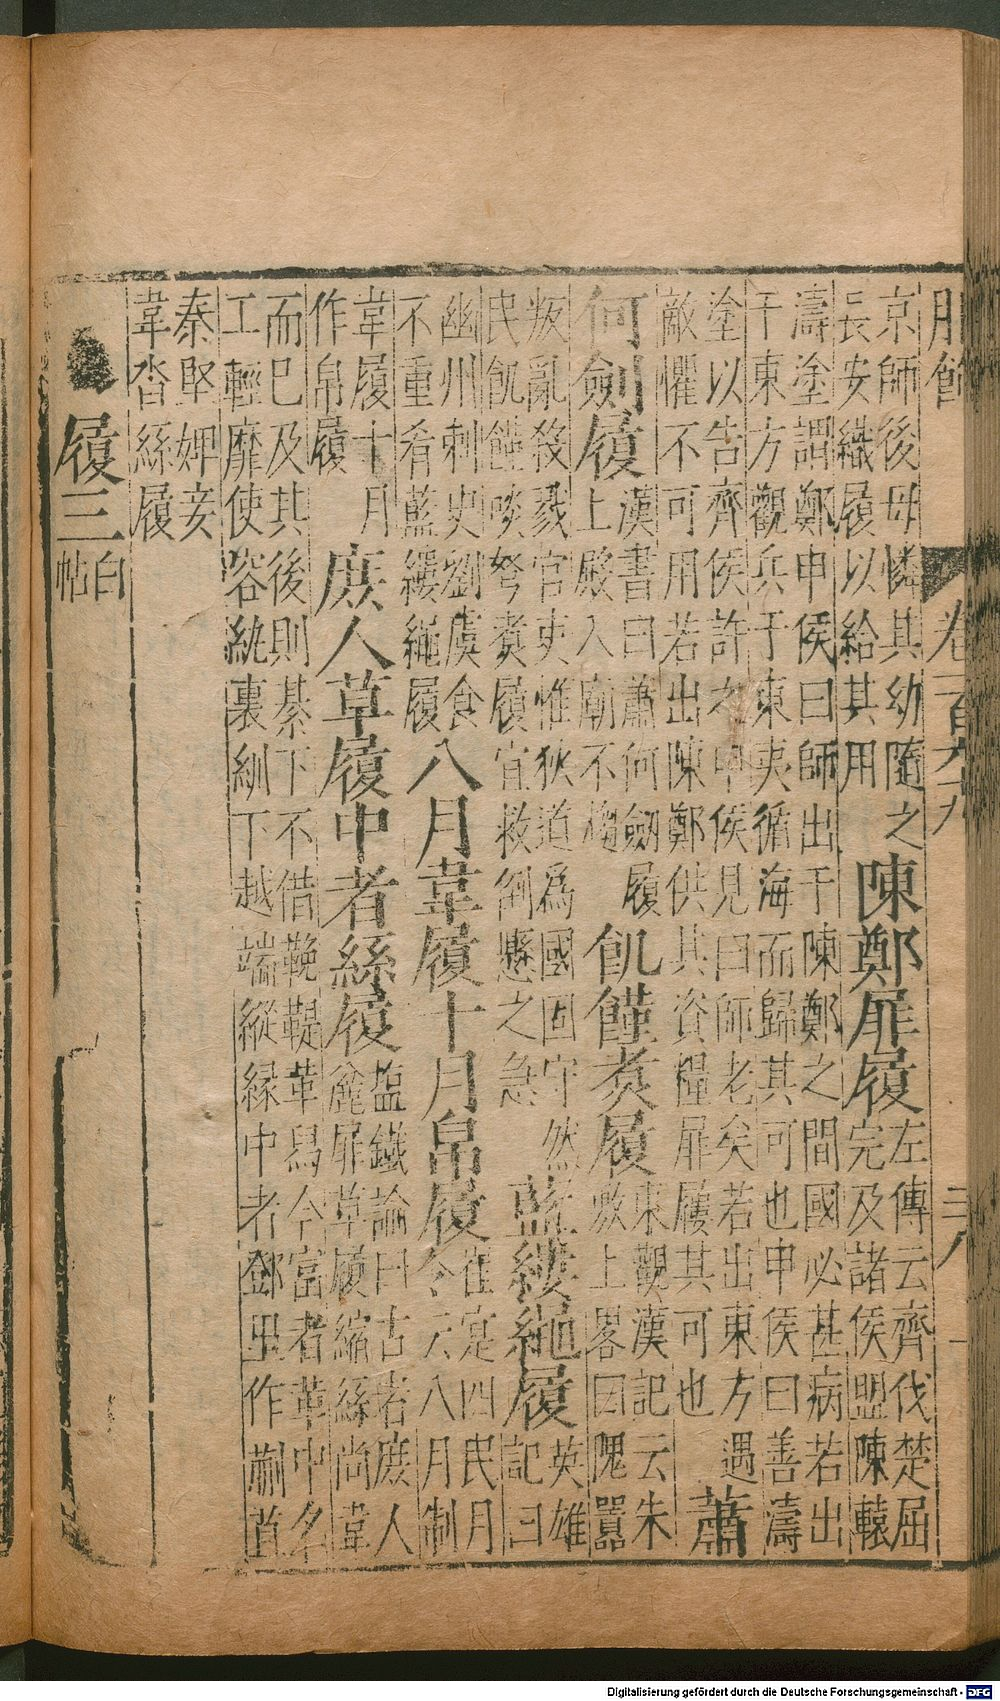 卷
三八
京師後母憐其幼隨之
長安織履以給其用
陳鄭屝履
左傳云齊伐楚屈
完及諸侯盟陳轅
濤塗謂鄭申侯曰師出于陳鄭之間國必甚病若出
于東方觀兵于東夷循海而歸其可也申侯曰善濤
塗以告齊侯許之申侯見曰師老矣若出東方遇
敵懼不可用若出陳鄭供其資糧屝屨其可也
蕭
何劍履
漢書曰蕭何劔履
上殿入廟不趨
飢饉煑履
東觀漢記云朱
敷上畧因隗囂
叛亂殺戮官吏惟狄道爲國固守然
民飢饉啖弩煑履宜救倒懸之急
藍縷繩履
英雄
記曰
幽州刺史劉虞食
不重肴藍縷繩履
八月韋履十月帛履
崔寔四民月
令云八月制
韋履十月
作帛履
庶人草履中者絲履
塩鐵論曰古者庶人
麄屝草履縮絲尚韋
而已及其後則綦下不借鞔鞮革舄今富者革中名
工輕靡使容紈裏紃下越端縱緣中者鄧里作蒯苴
秦堅婢妾
韋沓絲履
履三
白
帖
Digitalisierung gefördert durch die Deutsche Forschungsgemeinschaft - DFG